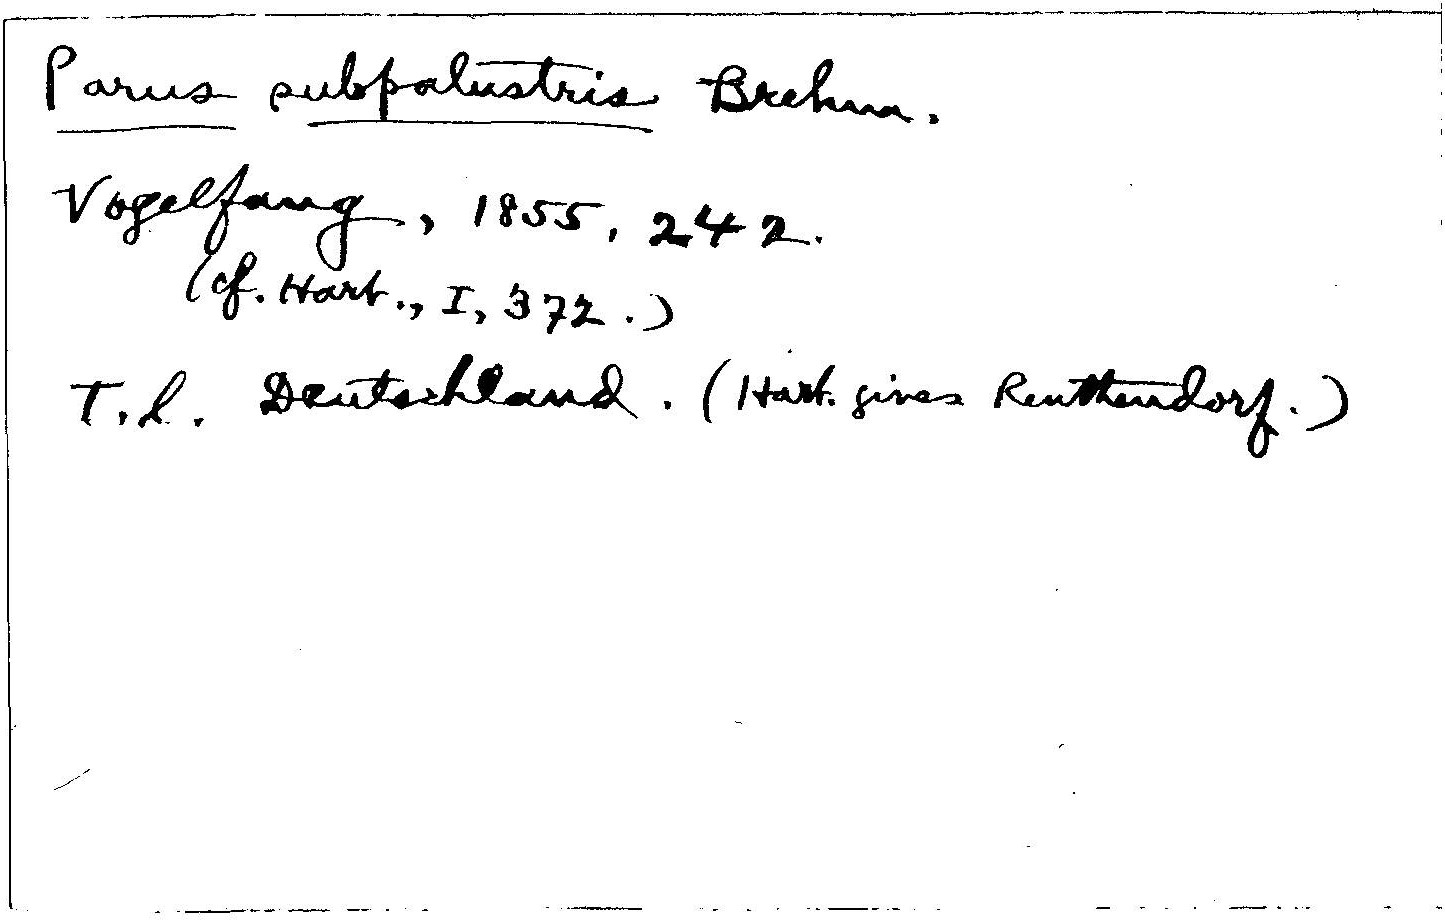 Parus subpalustris Brehm.
Vogelfang, 1855, 242.
(cf. Hart., I, 372.)
T.l. Deutschland. (Hart. gives Renthendorf.)